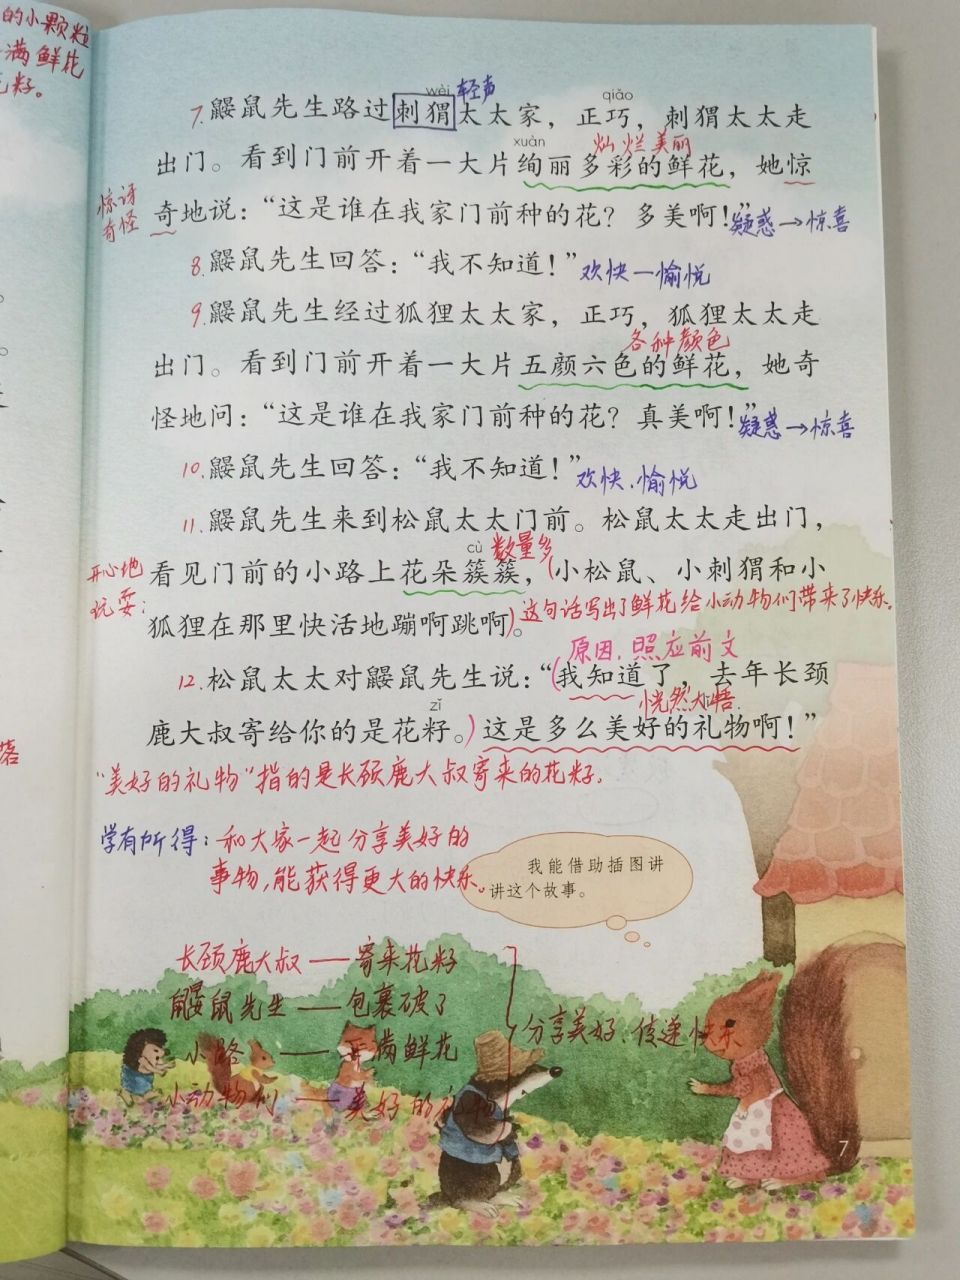 的小颗粒
满鲜花
籽。
wèi 轻声 qiǎo
7.鼹鼠先生路过刺猬太太家，正巧，刺猬太太走
xuàn 灿烂美丽
出门。看到门前开着一大片绚丽多彩的鲜花，她惊
惊讶
奇怪
奇地说：“这是谁在我家门前种的花？多美啊！”疑惑→惊喜
8.鼹鼠先生回答：“我不知道！”欢快—愉悦
9.鼹鼠先生经过狐狸太太家，正巧，狐狸太太走
各种颜色
出门。看到门前开着一大片五颜六色的鲜花，她奇
怪地问：“这是谁在我家门前种的花？真美啊！”疑惑→惊喜
10.鼹鼠先生回答：“我不知道！”欢快、愉悦
11.鼹鼠先生来到松鼠太太门前。松鼠太太走出门，
cù 数量多
开心地
玩耍：
看见门前的小路上花朵簇簇，(小松鼠、小刺猬和小
狐狸在那里快活地蹦啊跳啊)。这句话写出了鲜花给小动物们带来了快乐。
原因，照应前文
12.松鼠太太对鼹鼠先生说：“(我知道了，去年长颈
zǐ 恍然大悟
鹿大叔寄给你的是花籽。)这是多么美好的礼物啊！”
“美好的礼物”指的是长颈鹿大叔寄来的花籽.
学有所得：和大家一起分享美好的
事物，能获得更大的快乐。
我能借助插图讲
讲这个故事。
长颈鹿大叔——寄来花籽
鼹鼠先生——包裹破了
小路——开满鲜花
小动物们——美好的礼物
分享美好、传递快乐
7